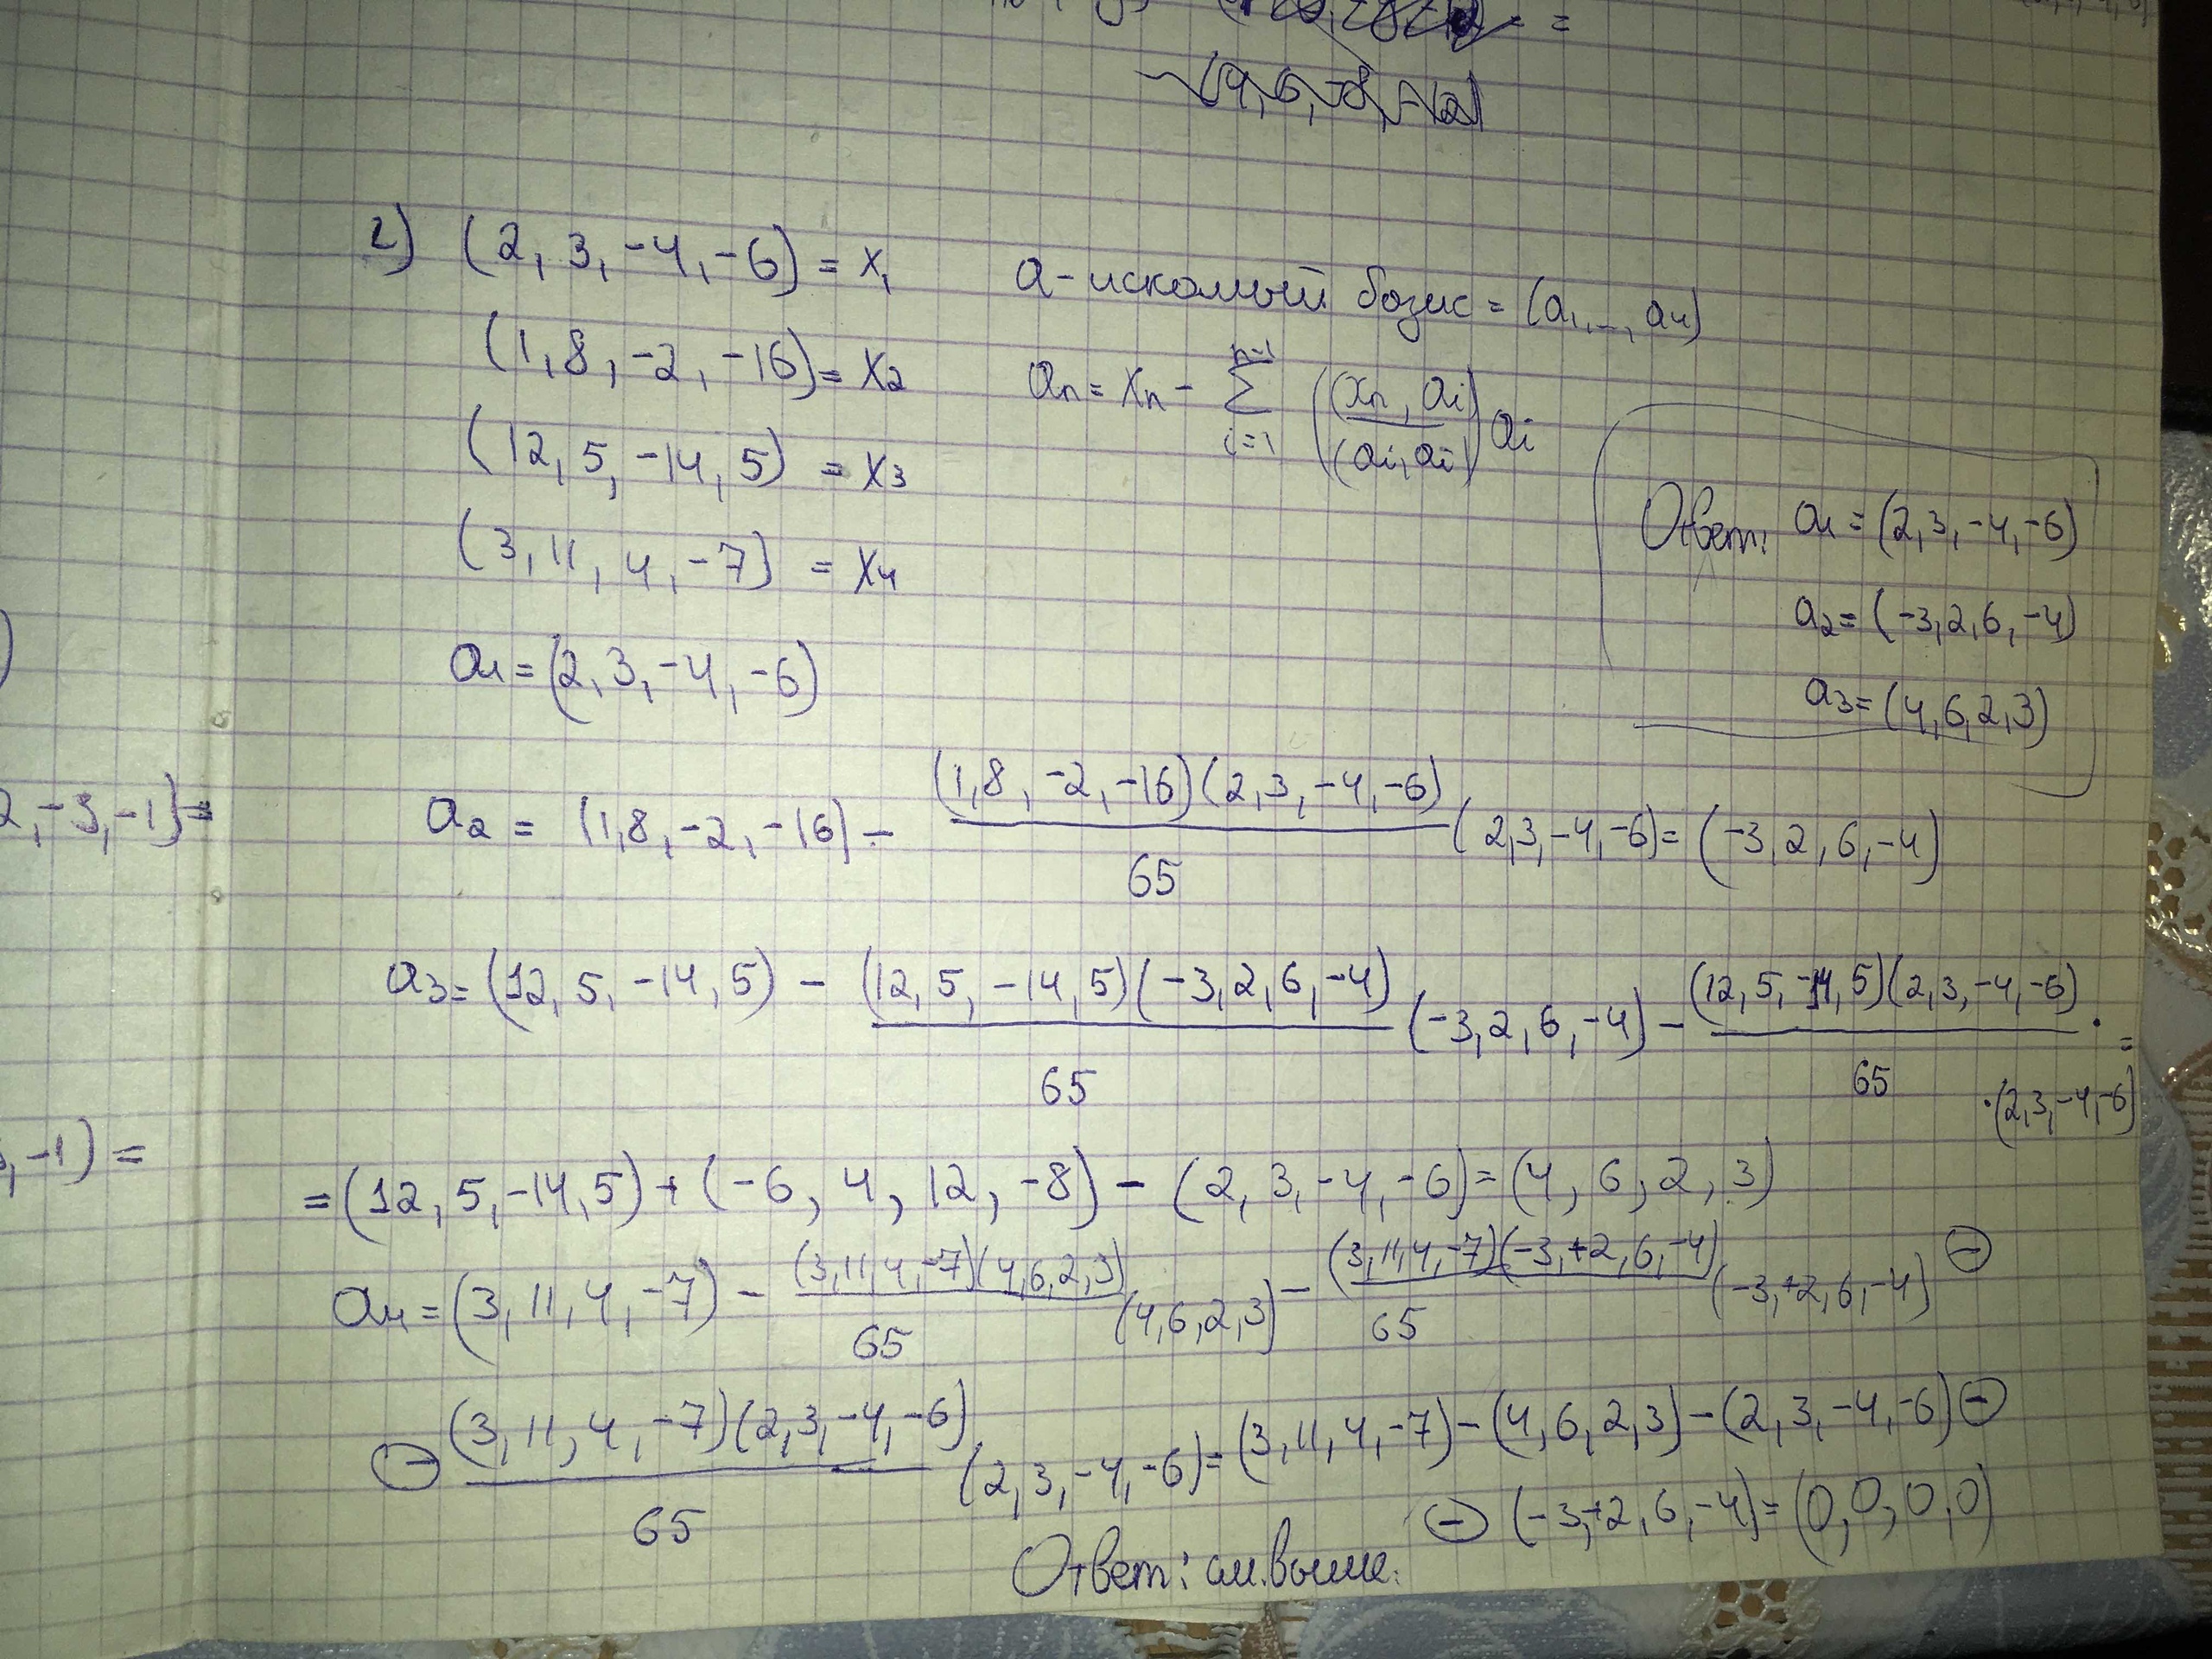 (4, 6, -8, -12)
2) (2, 3, -4, -6) = x₁
a - искомый базис = (a₁, ..., a₄)
(1, 8, -2, -16) = x₂
aₙ = xₙ - Σ (i=1, n-1) ((xₙ, aᵢ)/(aᵢ, aᵢ)) aᵢ
(12, 5, -14, 5) = x₃
(3, 11, 4, -7) = x₄
Ответ: a₁ = (2, 3, -4, -6)
a₂ = (-3, 2, 6, -4)
a₃ = (4, 6, 2, 3)
a₁ = (2, 3, -4, -6)
2, -3, -1) =
a₂ = (1, 8, -2, -16) - (1, 8, -2, -16)(2, 3, -4, -6)/65 (2, 3, -4, -6) = (-3, 2, 6, -4)
a₃ = (12, 5, -14, 5) - (12, 5, -14, 5)(-3, 2, 6, -4)/65 (-3, 2, 6, -4) - (12, 5, -14, 5)(2, 3, -4, -6)/65 · · (2, 3, -4, -6) =
, -1) =
= (12, 5, -14, 5) + (-6, 4, 12, -8) - (2, 3, -4, -6) = (4, 6, 2, 3)
a₄ = (3, 11, 4, -7) - (3, 11, 4, -7)(4, 6, 2, 3)/65 (4, 6, 2, 3) - (3, 11, 4, -7)(-3, +2, 6, -4)/65 (-3, +2, 6, -4) ⊖
⊖ (3, 11, 4, -7)(2, 3, -4, -6)/65 (2, 3, -4, -6) = (3, 11, 4, -7) - (4, 6, 2, 3) - (2, 3, -4, -6) ⊖
⊖ (-3, +2, 6, -4) = (0, 0, 0, 0)
Ответ: см. выше.